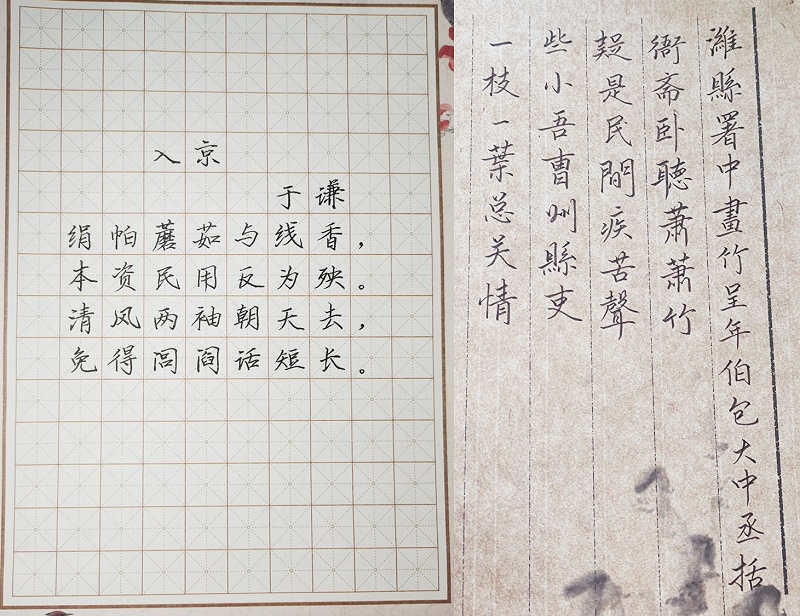 入京
于谦
绢帕蘑茹与线香，
本资民用反为殃。
清风两袖朝天去，
免得闾阎话短长。
潍縣署中畫竹呈年伯包大中丞括
衙斋卧聽萧萧竹
疑是民間疾苦聲
些小吾曹州縣吏
一枝一葉总关情